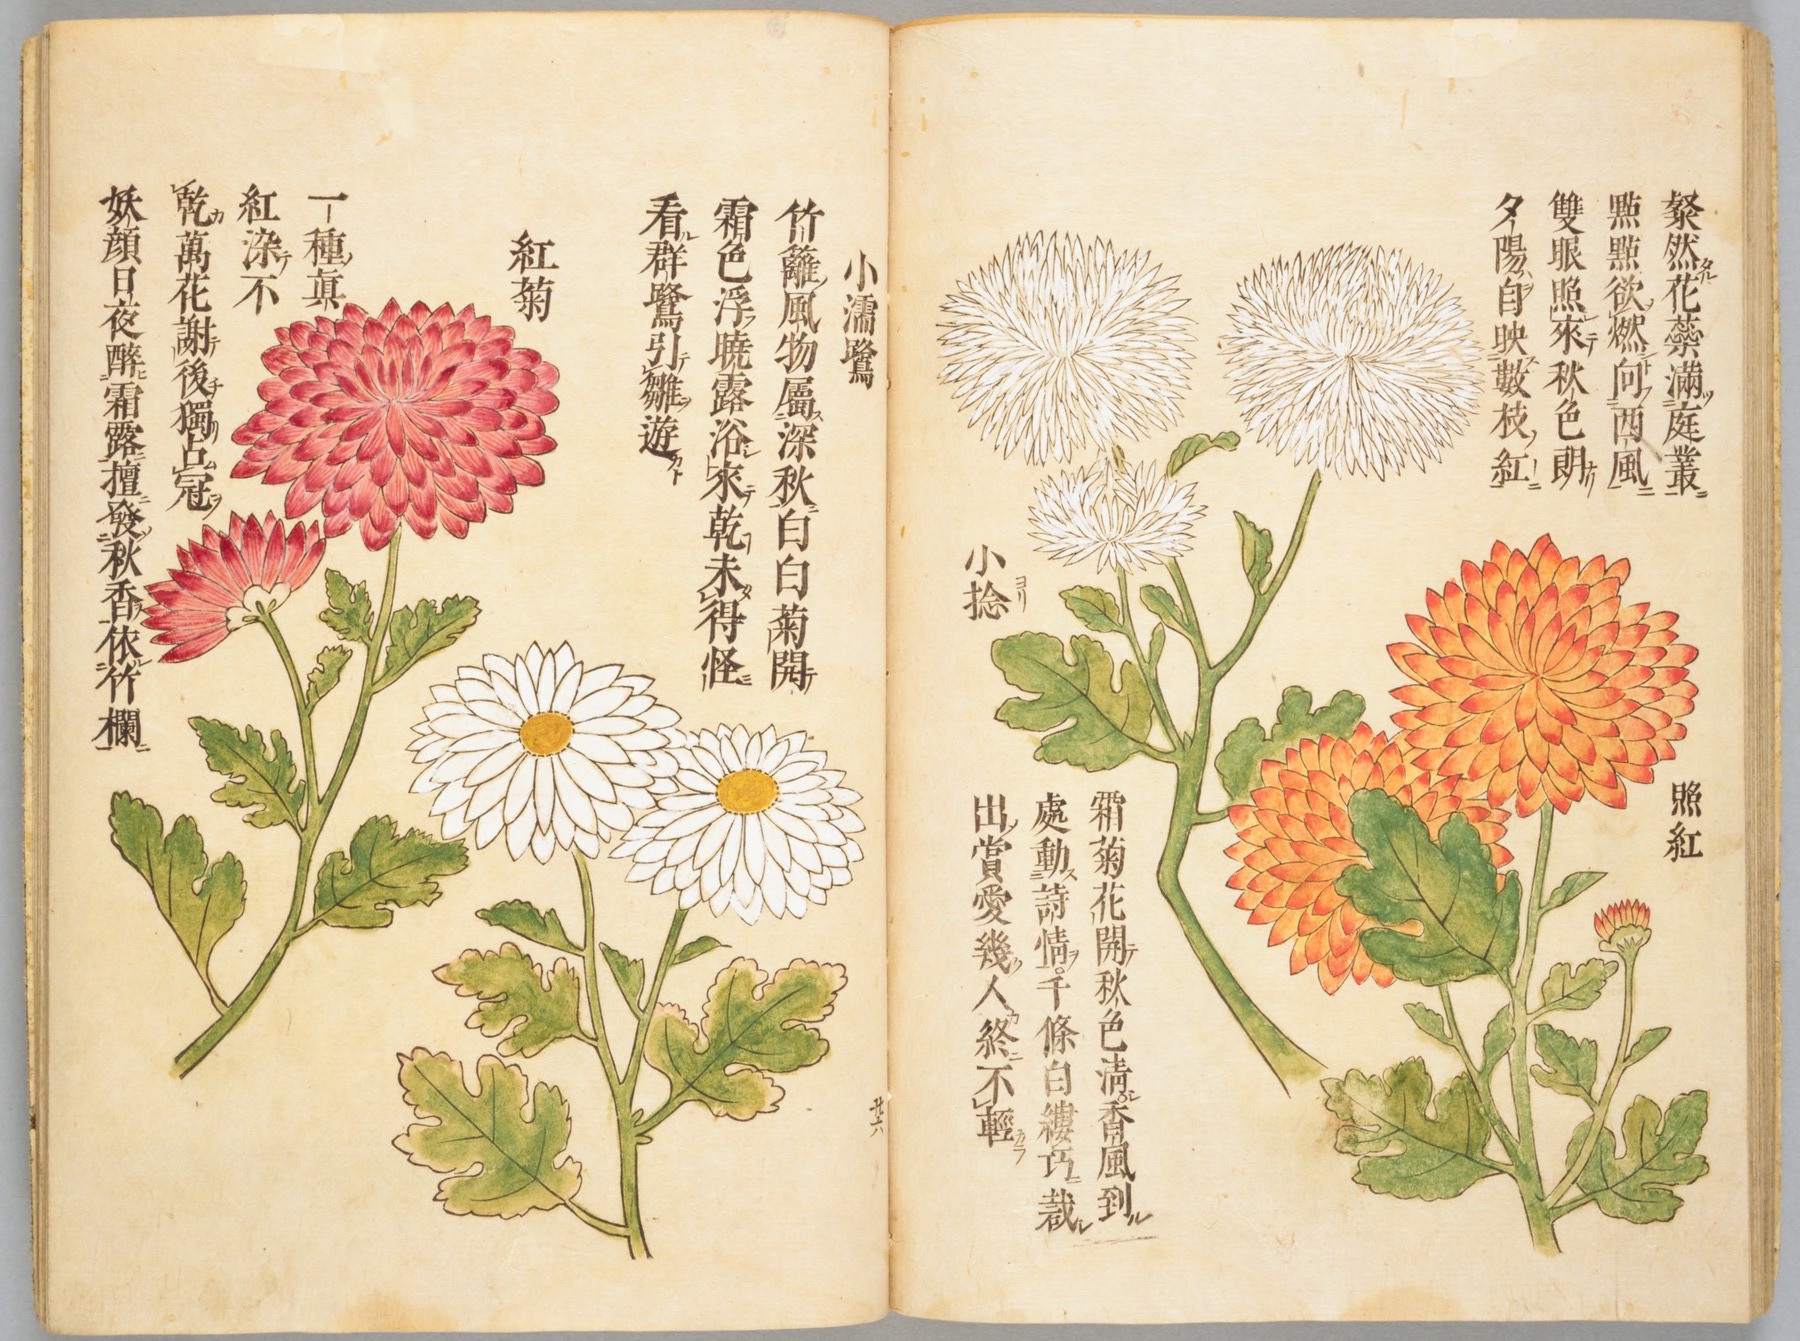 照紅
粲然花蘂滿庭叢
點點欲燃向西風
雙眼照來秋色朗
夕陽自映數枝紅
小捻
霜菊花開秋色淸香風到
處動詩情千條白縷巧裁
出賞愛幾人終不輕
小濡鷺
竹籬風物屬深秋白白菊開
霜色浮曉露浴來乾未得怪
看群鷺引雛遊
廿六
紅菊
一種眞
紅染不
乾萬花謝後獨占冠
妖顔日夜醉霜露擅發秋香依竹欄